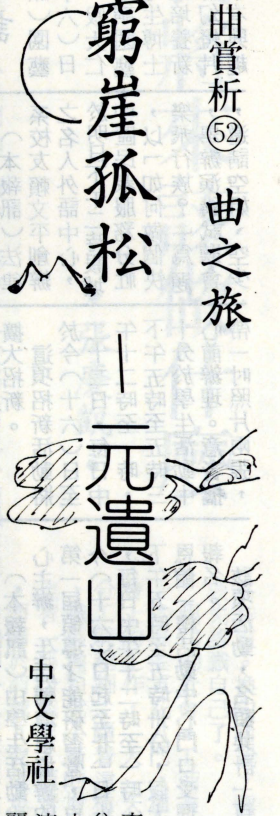 曲賞析52 曲之旅
窮崖孤松
—元遺山
中文學社